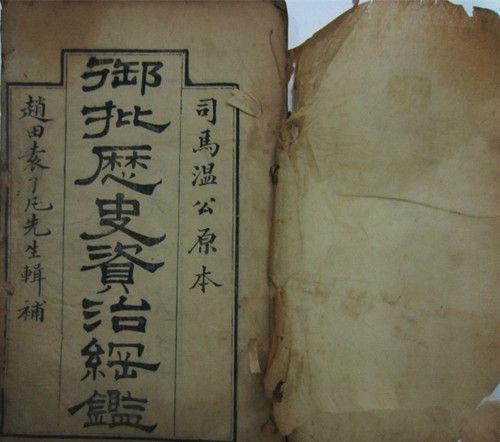 司馬温公原本
御批歷史資治綱鑑
趙田袁了凡先生輯補